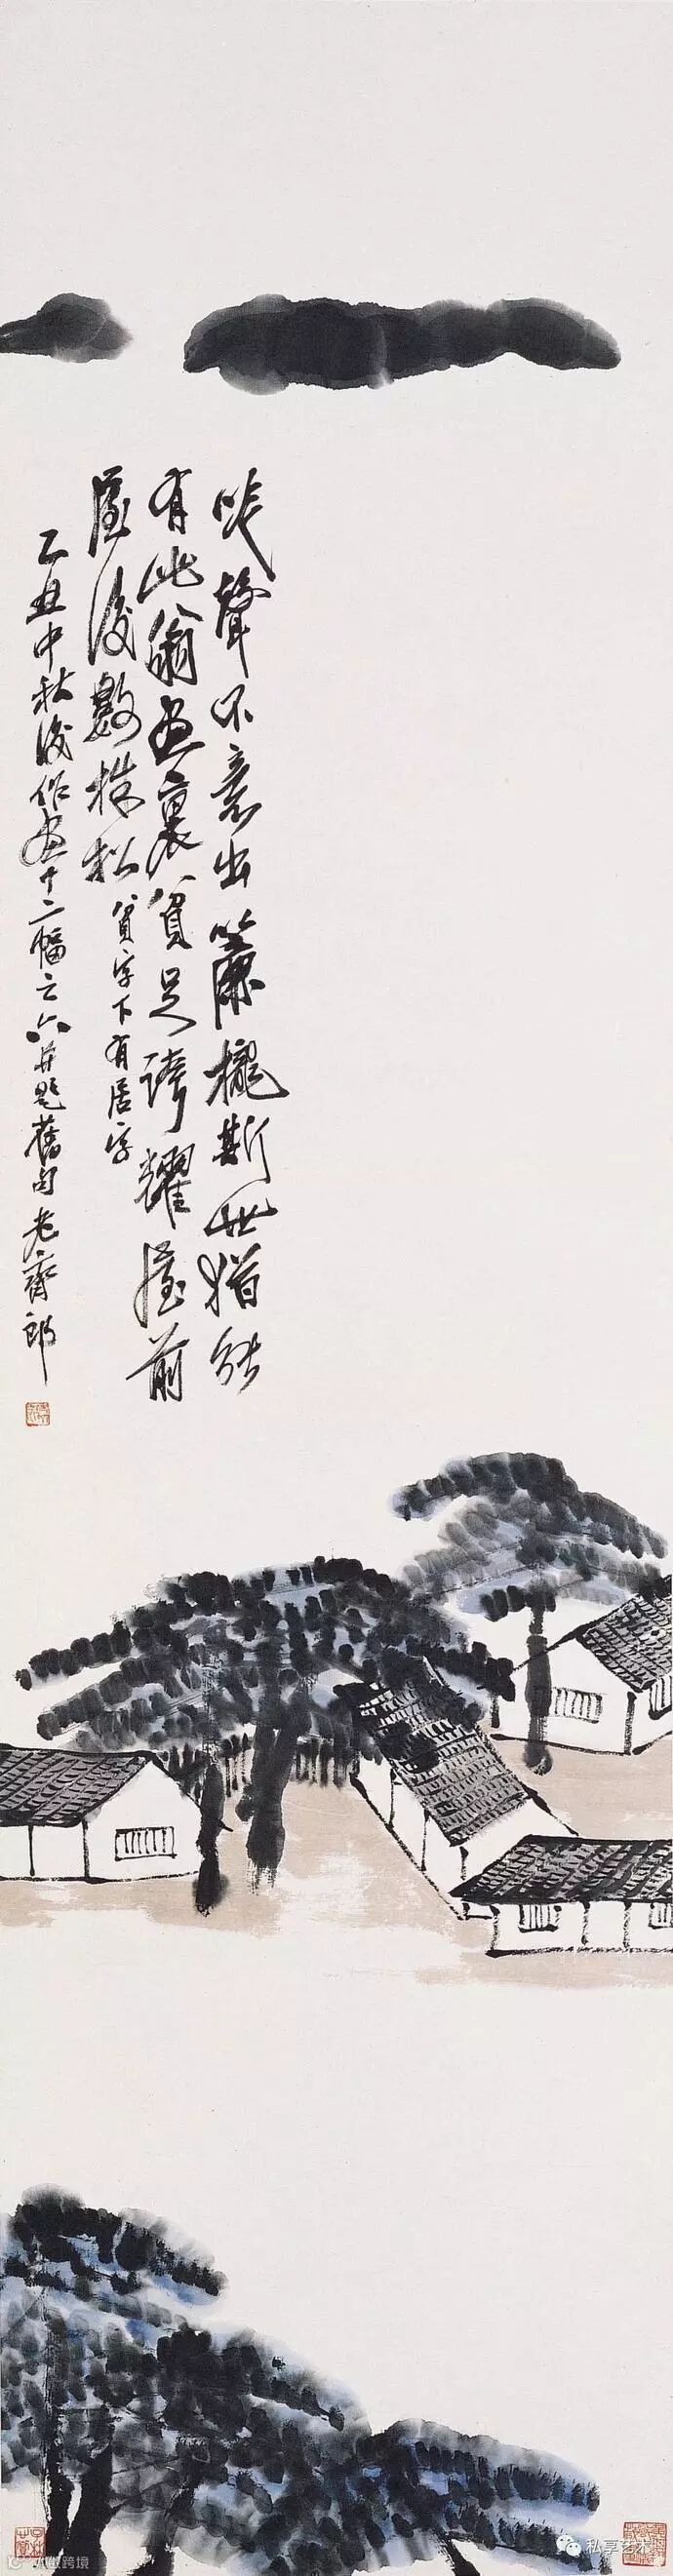 咲聲不意出簾櫳斯世猶能
有此翁畫裏貧足誇耀屋前
屋後數株松
貧字下有居字
乙丑中秋後作畫十二幅之六并題舊句老齊郎
跨境
私享艺术